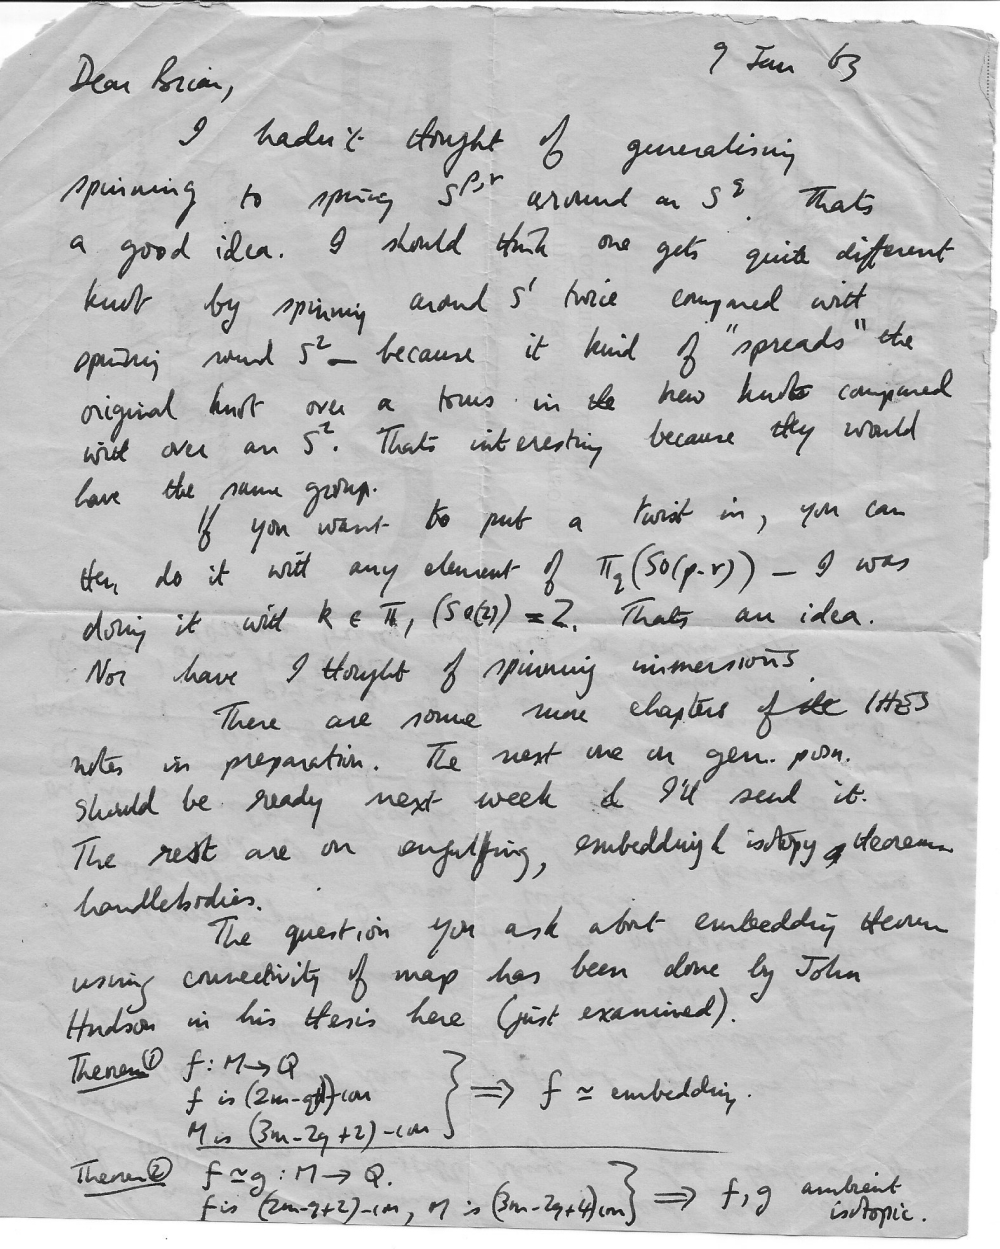 9 Jan 63
Dear Brian,
I hadn't thought of generalising
spinning to spining S^p,r around an S^q. Thats
a good idea. I should think one gets quite different
knot by spinning around S^1 twice compared with
spinning round S^2 — because it kind of "spreads" the
original knot over a torus in the new knot compared
with over an S^2. Thats interesting because they would
have the same group.
If you want to put a twist in, you can
then do it with any element of π_q(SO(p-r)) — I was
doing it with k ∈ π_1(SO(2)) = Z. Thats an idea.
Nor have I thought of spinning immersions.
There are some more chapters of IHES
notes in preparation. The next one on gen. posn.
should be ready next week & I'll send it.
The rest are on engulfing, embedding & isotopy theorems
handlebodies.
The question you ask about embedding theorem
using connectivity of map has been done by John
Hudson in his thesis here (just examined).
Theorem ① f : M → Q
f is (2m-q+1)-con
M is (3m-2q+2)-con } ⟹ f ≃ embedding.
Theorem ② f ≃ g : M → Q.
f is (2m-q+2)-con, M is (3m-2q+4)con } ⟹ f, g ambient
isotopic.